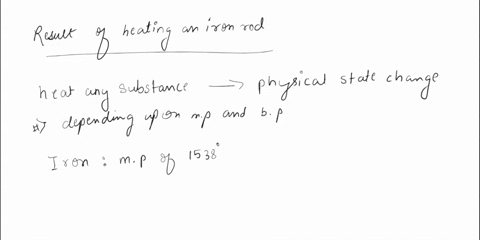 Result of heating an iron rod
heat any substance → physical state change
⇒ depending upon m.p and b.p
Iron : m.p of 1538°